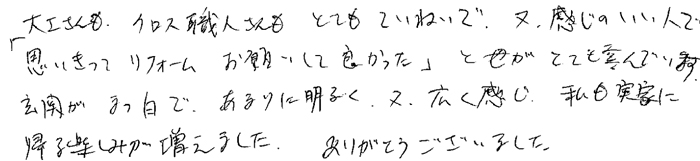 大工さんも、クロス職人さんも とても ていねいで、又、感じのいい人で
「思いきって リフォーム お願いして良かった」と母が とても喜んでいます。
玄関が まっ白で、あまりに明るく、又、広く感じ、私も実家に
帰る楽しみが増えました。 ありがとうございました。